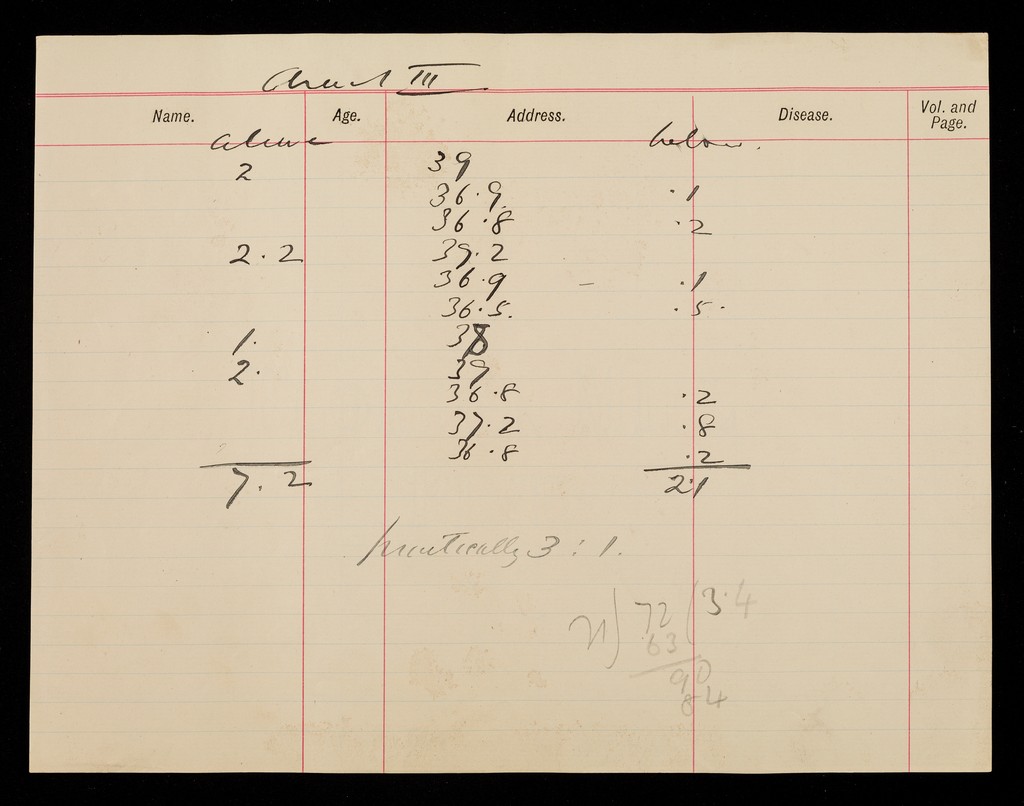 Chart III
Name. Age. Address. Disease. Vol. and Page.
above below.
2 39
36.9. .1
36.8 .2
2.2 39.2
36.9 – .1
36.5. .5.
1. 38
2. 39
36.8 .2
37.2 .8
36.8 .2
7.2 2.1
practically 3 : 1.
21) 72 (3.4
63
90
84